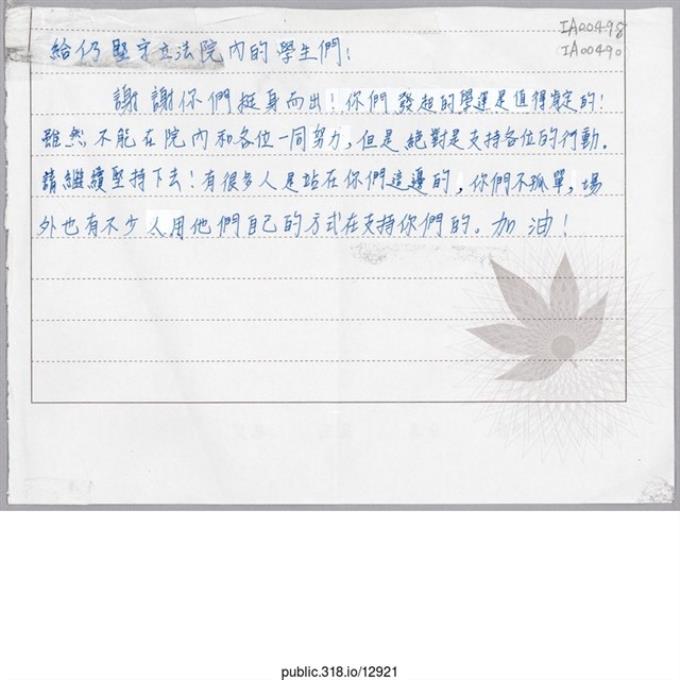 IA00498
IA00490
給仍堅守立法院內的學生們:
謝謝你們挺身而出!你們發起的學運是值得肯定的!
雖然不能在院內和各位一同努力,但是絕對是支持各位的行動。
請繼續堅持下去!有很多人是站在你們這邊的,你們不孤單,場
外也有不少人用他們自己的方式在支持你們的。加油!
public.318.io/12921